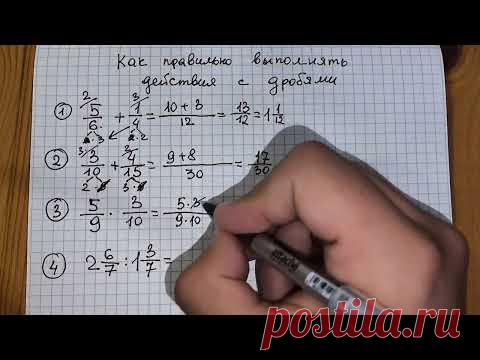 Как правильно выполнять
действия с дробями
2 3
① 5/6 + 1/4 = (10 + 3)/12 = 13/12 = 1 1/12
2·3 2·2
3 2
② 3/10 + 4/15 = (9 + 8)/30 = 17/30
2·5 3·5
③ 5/9 · 3/10 = (5·3)/(9·10)
④ 2 6/7 : 1 3/7 =
postila.ru